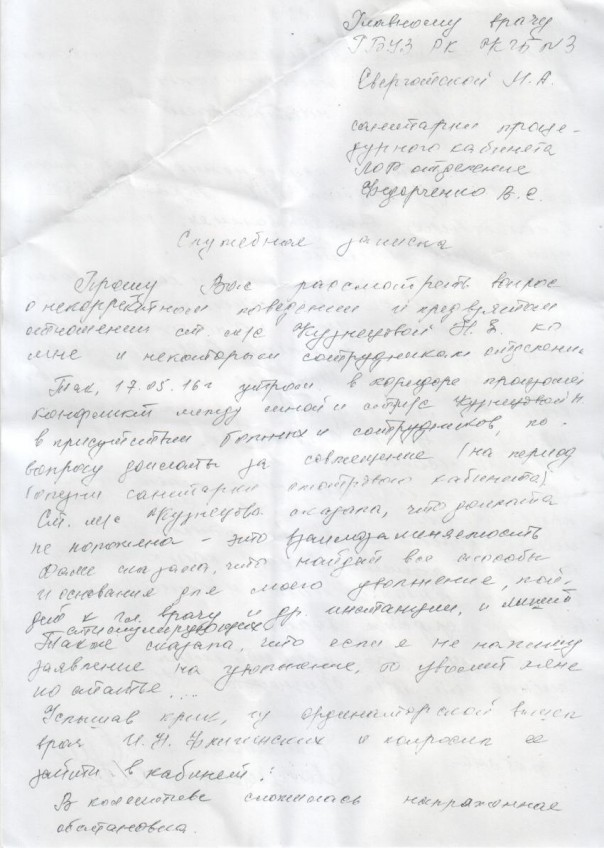 Главному врачу
ГБУЗ РК РКГБ №3
санитарки проце-
дурного кабинета
ЛОР отделение
Федорченко В.С.
Служебная записка
Прошу Вас рассмотреть вопрос
о некорректном поведении и предвзятом
отношении ст. м/с Кузнецовой Н. ко
мне и некоторым сотрудникам отделения
Так, 17.05.16г утром в коридоре произошел
конфликт между мной и ст. м/с Кузнецовой Н
в присутствии больных и сотрудников, по
вопросу доплаты за совмещение (на период
санитарки смотрового кабинета)
Ст. м/с Кузнецова сказала, что доплата
не положена - это взаимозаменяемость
Даже сказала, что найдет все способы
и основания для моего увольнения, пой-
дет к гл. врачу и др. инстанции, и лишит
стимулирующих
Также сказала, что если я не напишу
заявление на увольнение, то уволит меня
по статье ...
Услышав крик, из ординаторской вышел
врач И.Н. и попросил ее
зайти в кабинет.
В коллективе сложилась напряженная
обстановка.